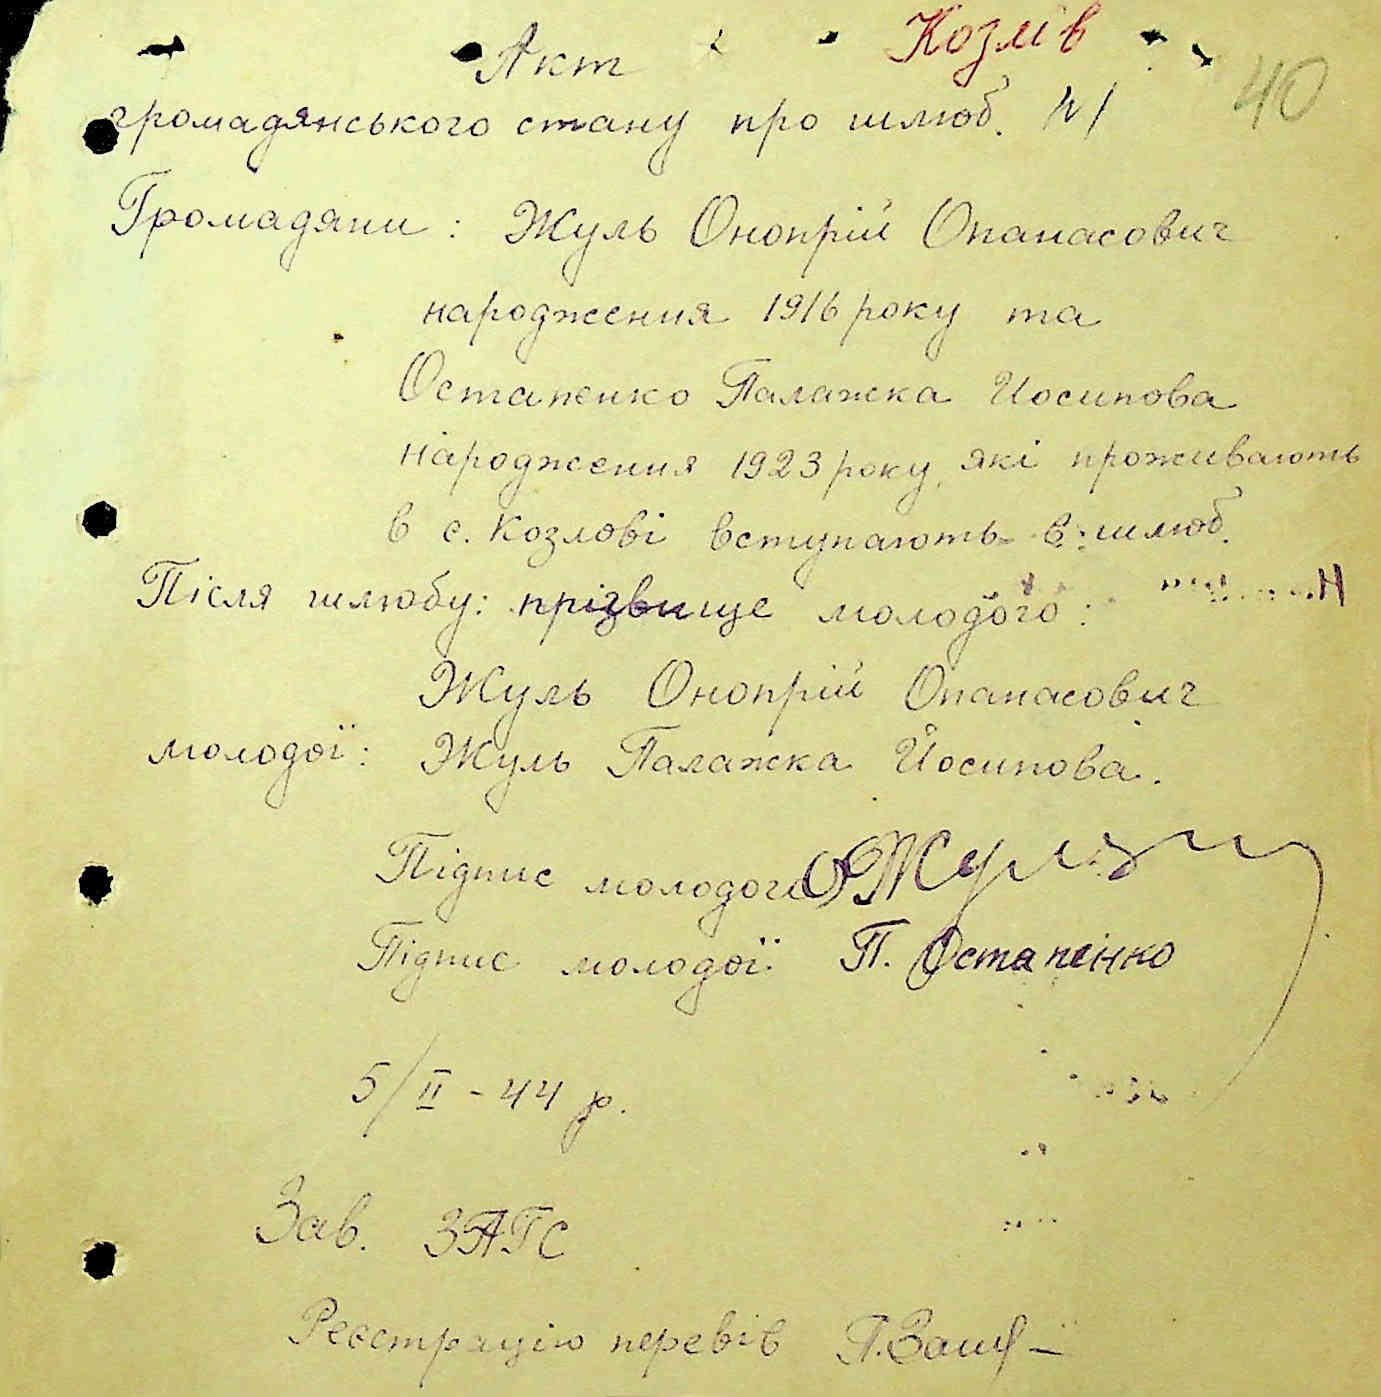 Козлів
40
Акт
громадянського стану про шлюб. N 1
Громадяни: Жуль Онопрій Опанасович
народження 1916 року та
Остапенко Палажка Иосипова
народження 1923 року, які проживають
в с. Козлові вступають в шлюб.
Після шлюбу: прізвище молодого:
Жуль Онопрій Опанасович
молодої: Жуль Палажка Йосипова.
Підпис молодого
Підпис молодої П. Остапенко
5/II - 44 р.
Зав. ЗАГС
Реєстрацію перевів